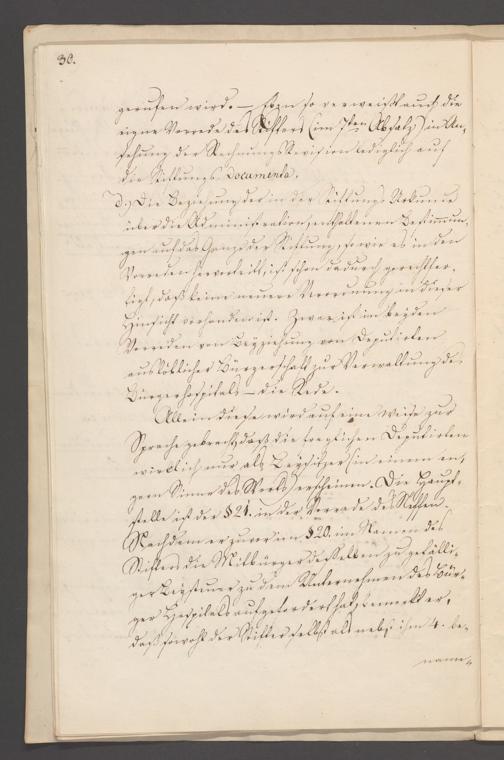 30.
gerufen wird. — Eben so verweißt auch die
eigne Vorrede des Stifters (im 7ten Absatz) in An-
sehung der Rechnungs Revision lediglich auf
die Stiftungs Documente.
d.) Die Beziehung der in der Stiftungs Urkunde
über die Administration enthaltenen Bestimmun-
gen auf das Ganze der Stiftung, so wie es in den
Vorreden herrscht, ist schon dadurch gerechtfer-
tigt, daß keine neuere Verordnung in dieser
Hinsicht vorhanden ist. Zwar ist in beyden
Vorreden von Beyziehung von Deputirten
aus löblicher Bürgerschaft zur Verwaltung des
Bürgerhospitals — die Rede.
Allein diese wird auf eine Weise zur
Sprache gebracht, daß die fraglichen Deputirten
wirklich nur als Beysitzer (in einem en-
gern Sinne des Worts) erscheinen. Die Haupt-
stelle ist der § 21. in der Vorrede des Neffen.
Nachdem er zuvor im § 20. im Namen des
Stifters die Mitbürger desselben zu gefälli-
ger Beysteuer zu dem Unternehmen des Bür-
ger Hospitals aufgefordert hat, bemerkt er,
daß sowohl der Stifter selbst als nebst ihm 4. be-
name-